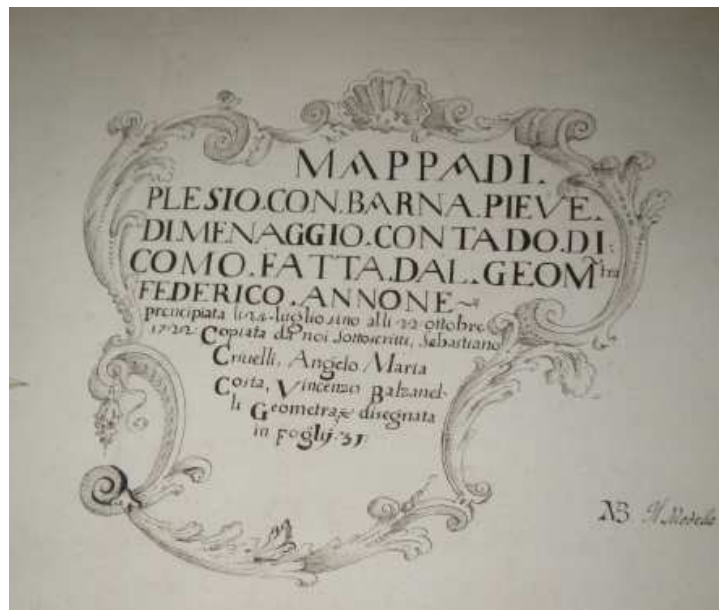 MAPPA.DI.
PLESIO.CON.BARNA.PIEVE.
DI.MENAGGIO.CONTADO.DI:
COMO.FATTA.DAL.GEOM̃tra
FEDERICO.ANNONE~
prencipiata li 24 luglio sino alli 22 ottobre
1722 Copiata da noi sottoscritti, Sebastiano
Criuelli, Angelo Maria
Costa, Vincenzo Balzanel-
li Geometra, e disegnata
in Foglij 31
NB Il Modello